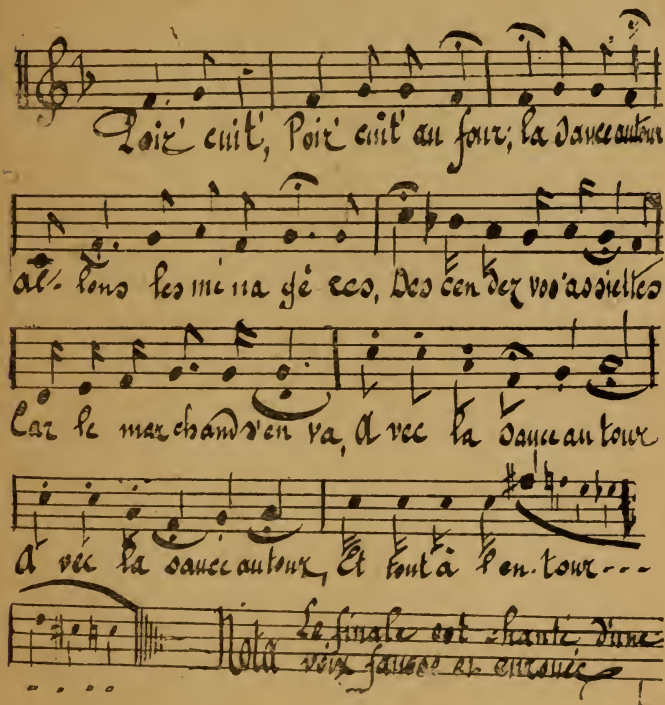 Poir' cuit', Poir' cuit' au four, la sauce autour
al-lons les mé na gè res, Des cen dez vos' assiettes
Car le marchand s'en va, A vec la sauce au tour
A vec la sauce autour, Et tout à l'en-tour---
Nota Le finale est chanté d'une
voix fausse et enrouée